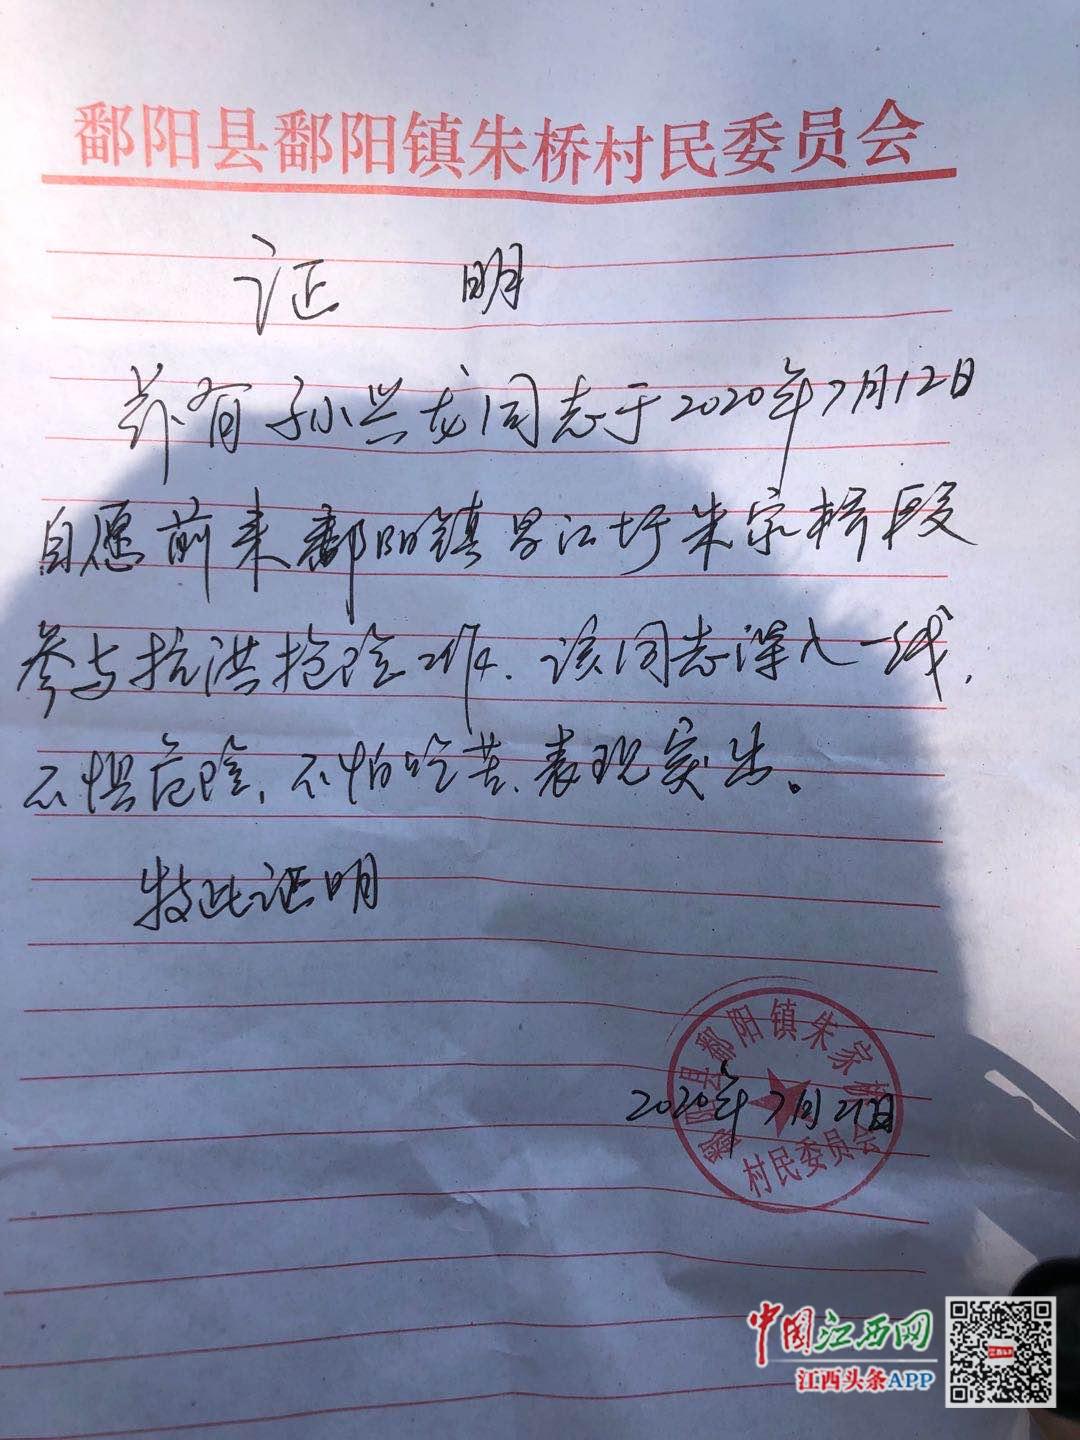 鄱阳县鄱阳镇朱桥村民委员会
证 明
兹有孙兴龙同志于2020年7月12日
自愿前来鄱阳镇昌江圩朱家桥段
参与抗洪抢险工作.该同志深入一线,
不惧危险,不怕吃苦,表现突出。
特此证明
鄱阳县鄱阳镇朱家桥
村民委员会
2020年7月21日
中国江西网
江西头条APP